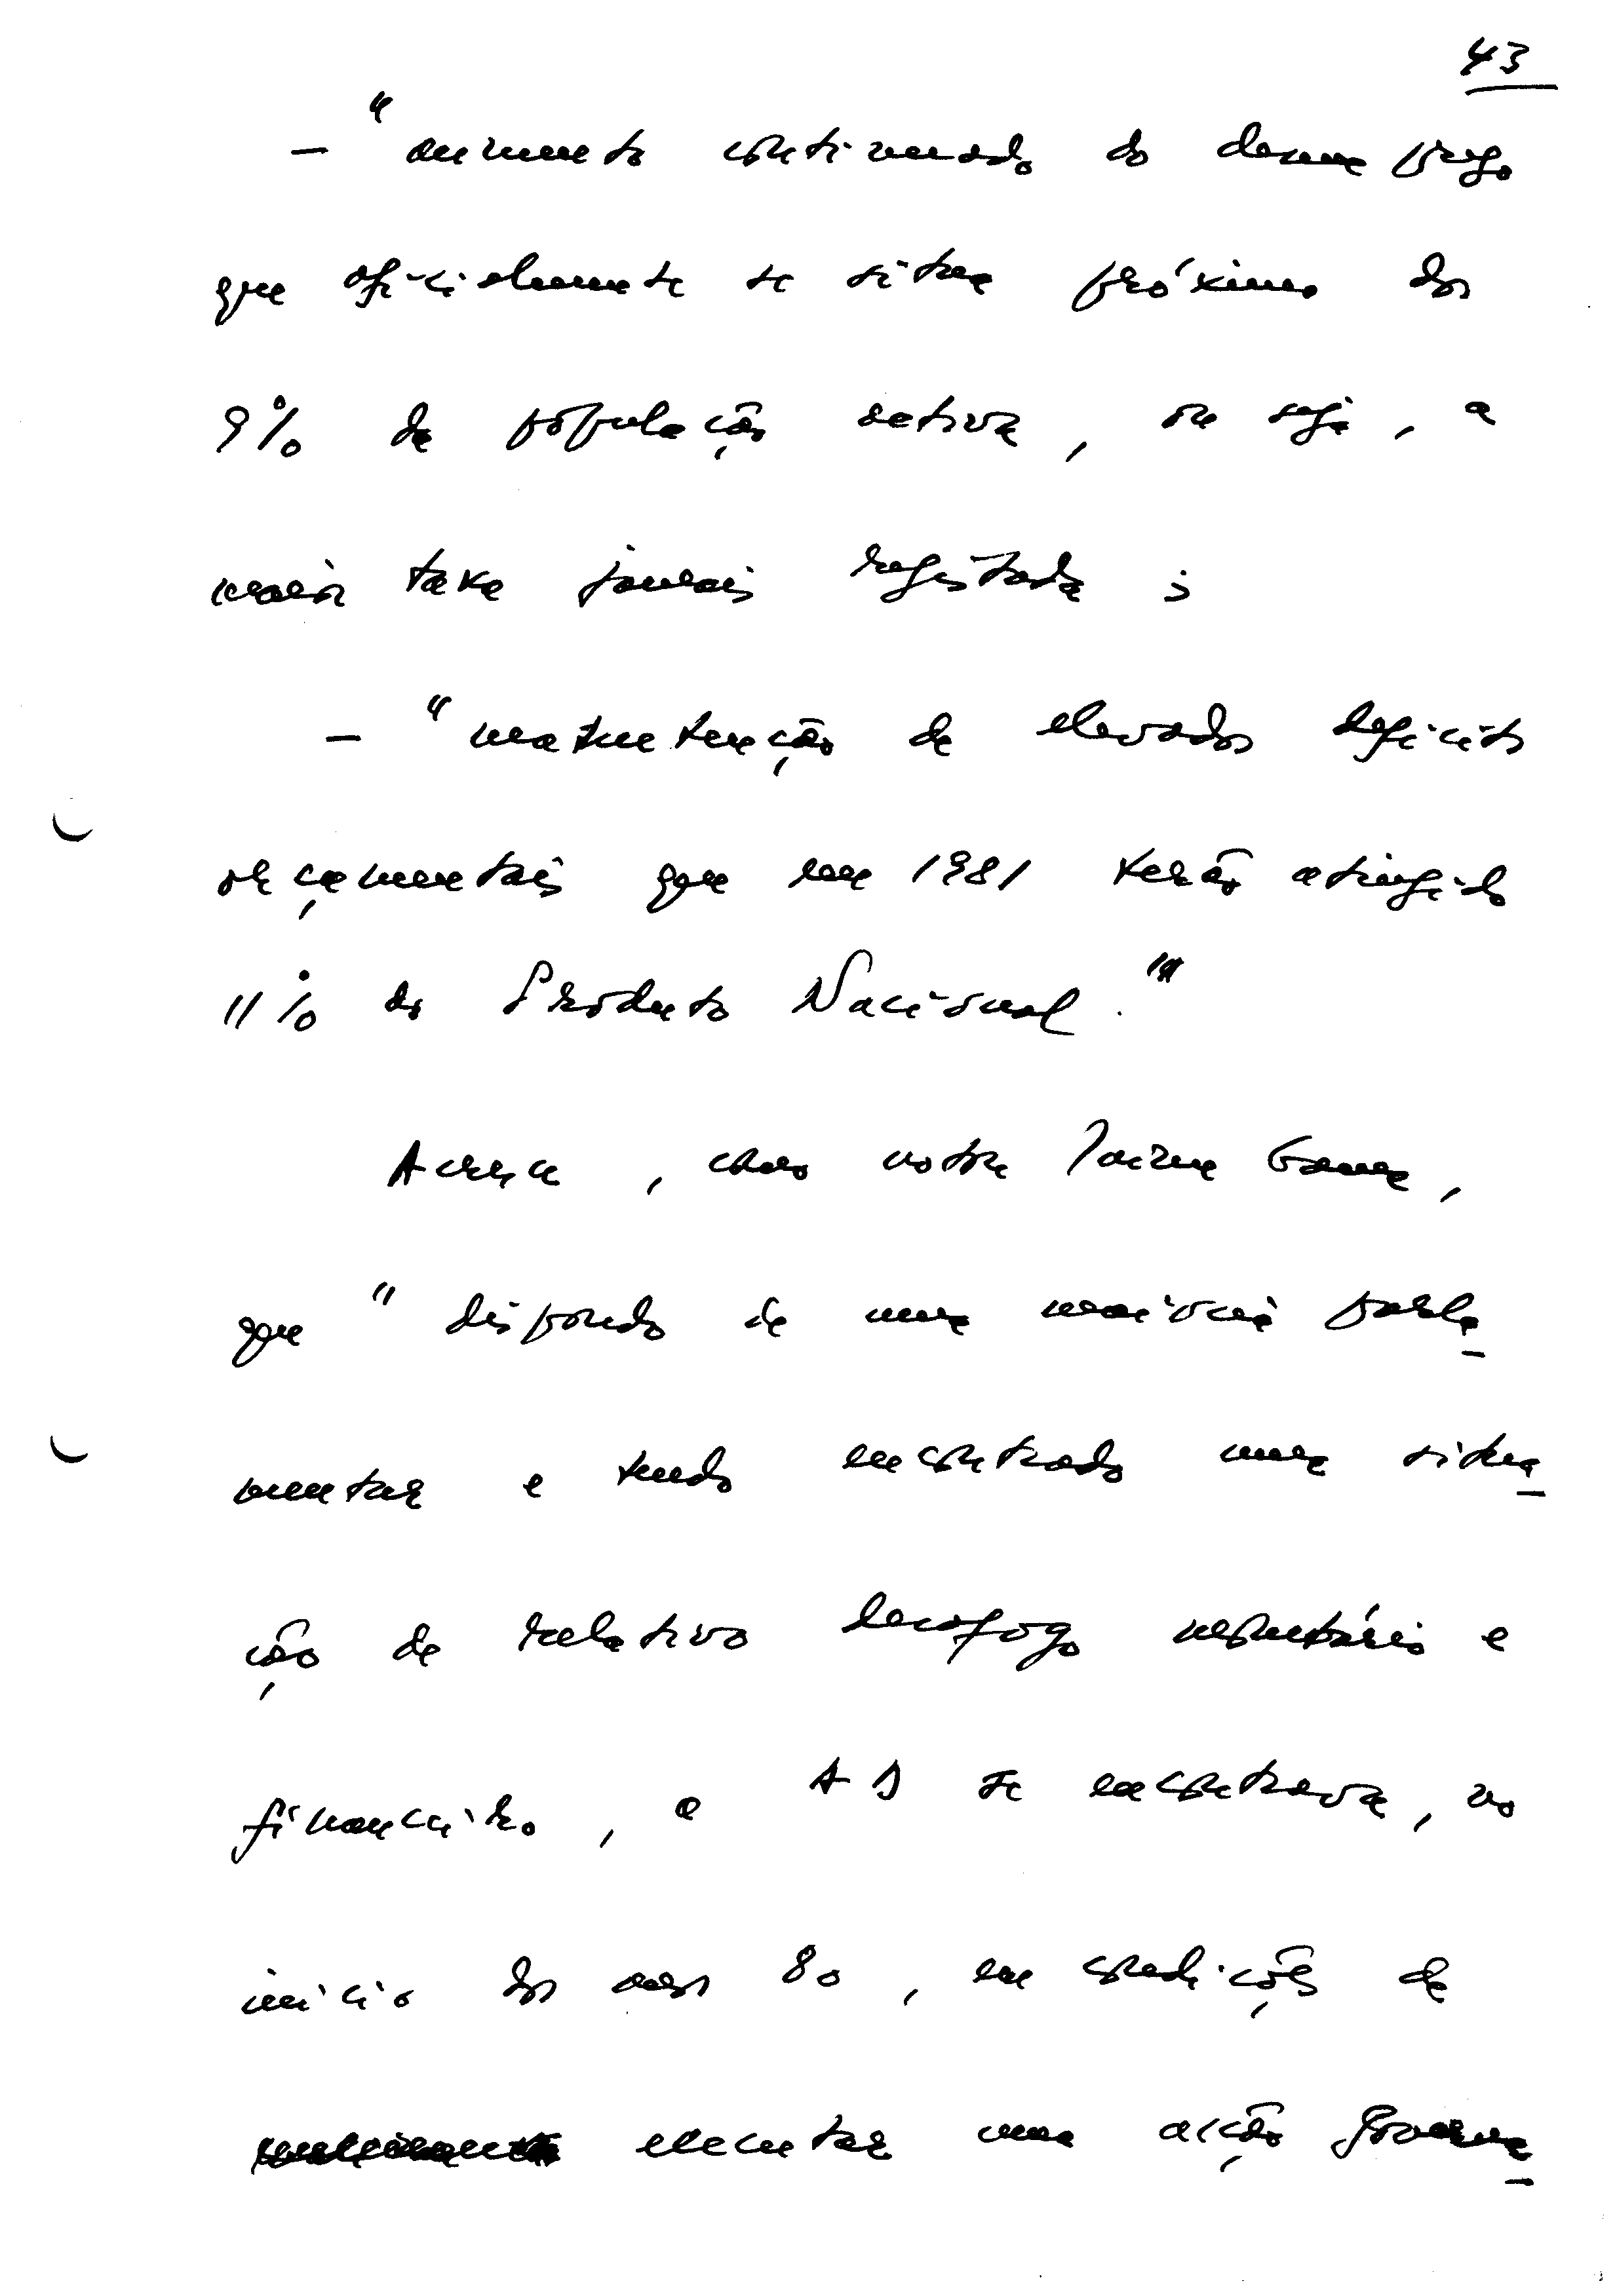 43
— "aumento continuado do desemprego
que oficialmente se situa próximo dos
9% da população activa, ou seja, a
maior taxa jamais registada;
— "manutenção de elevados deficits
orçamentais que em 1981 terão atingido
11% do Produto Nacional."
Acresce, como nota Jaime Gama,
que "dispondo de uma maioria parla_
mentar e tendo encontrado uma situa_
ção de relativo desafogo monetário e
financeiro, a AD se encontrava, no
início dos anos 80, em condições de
executar uma acção governa_